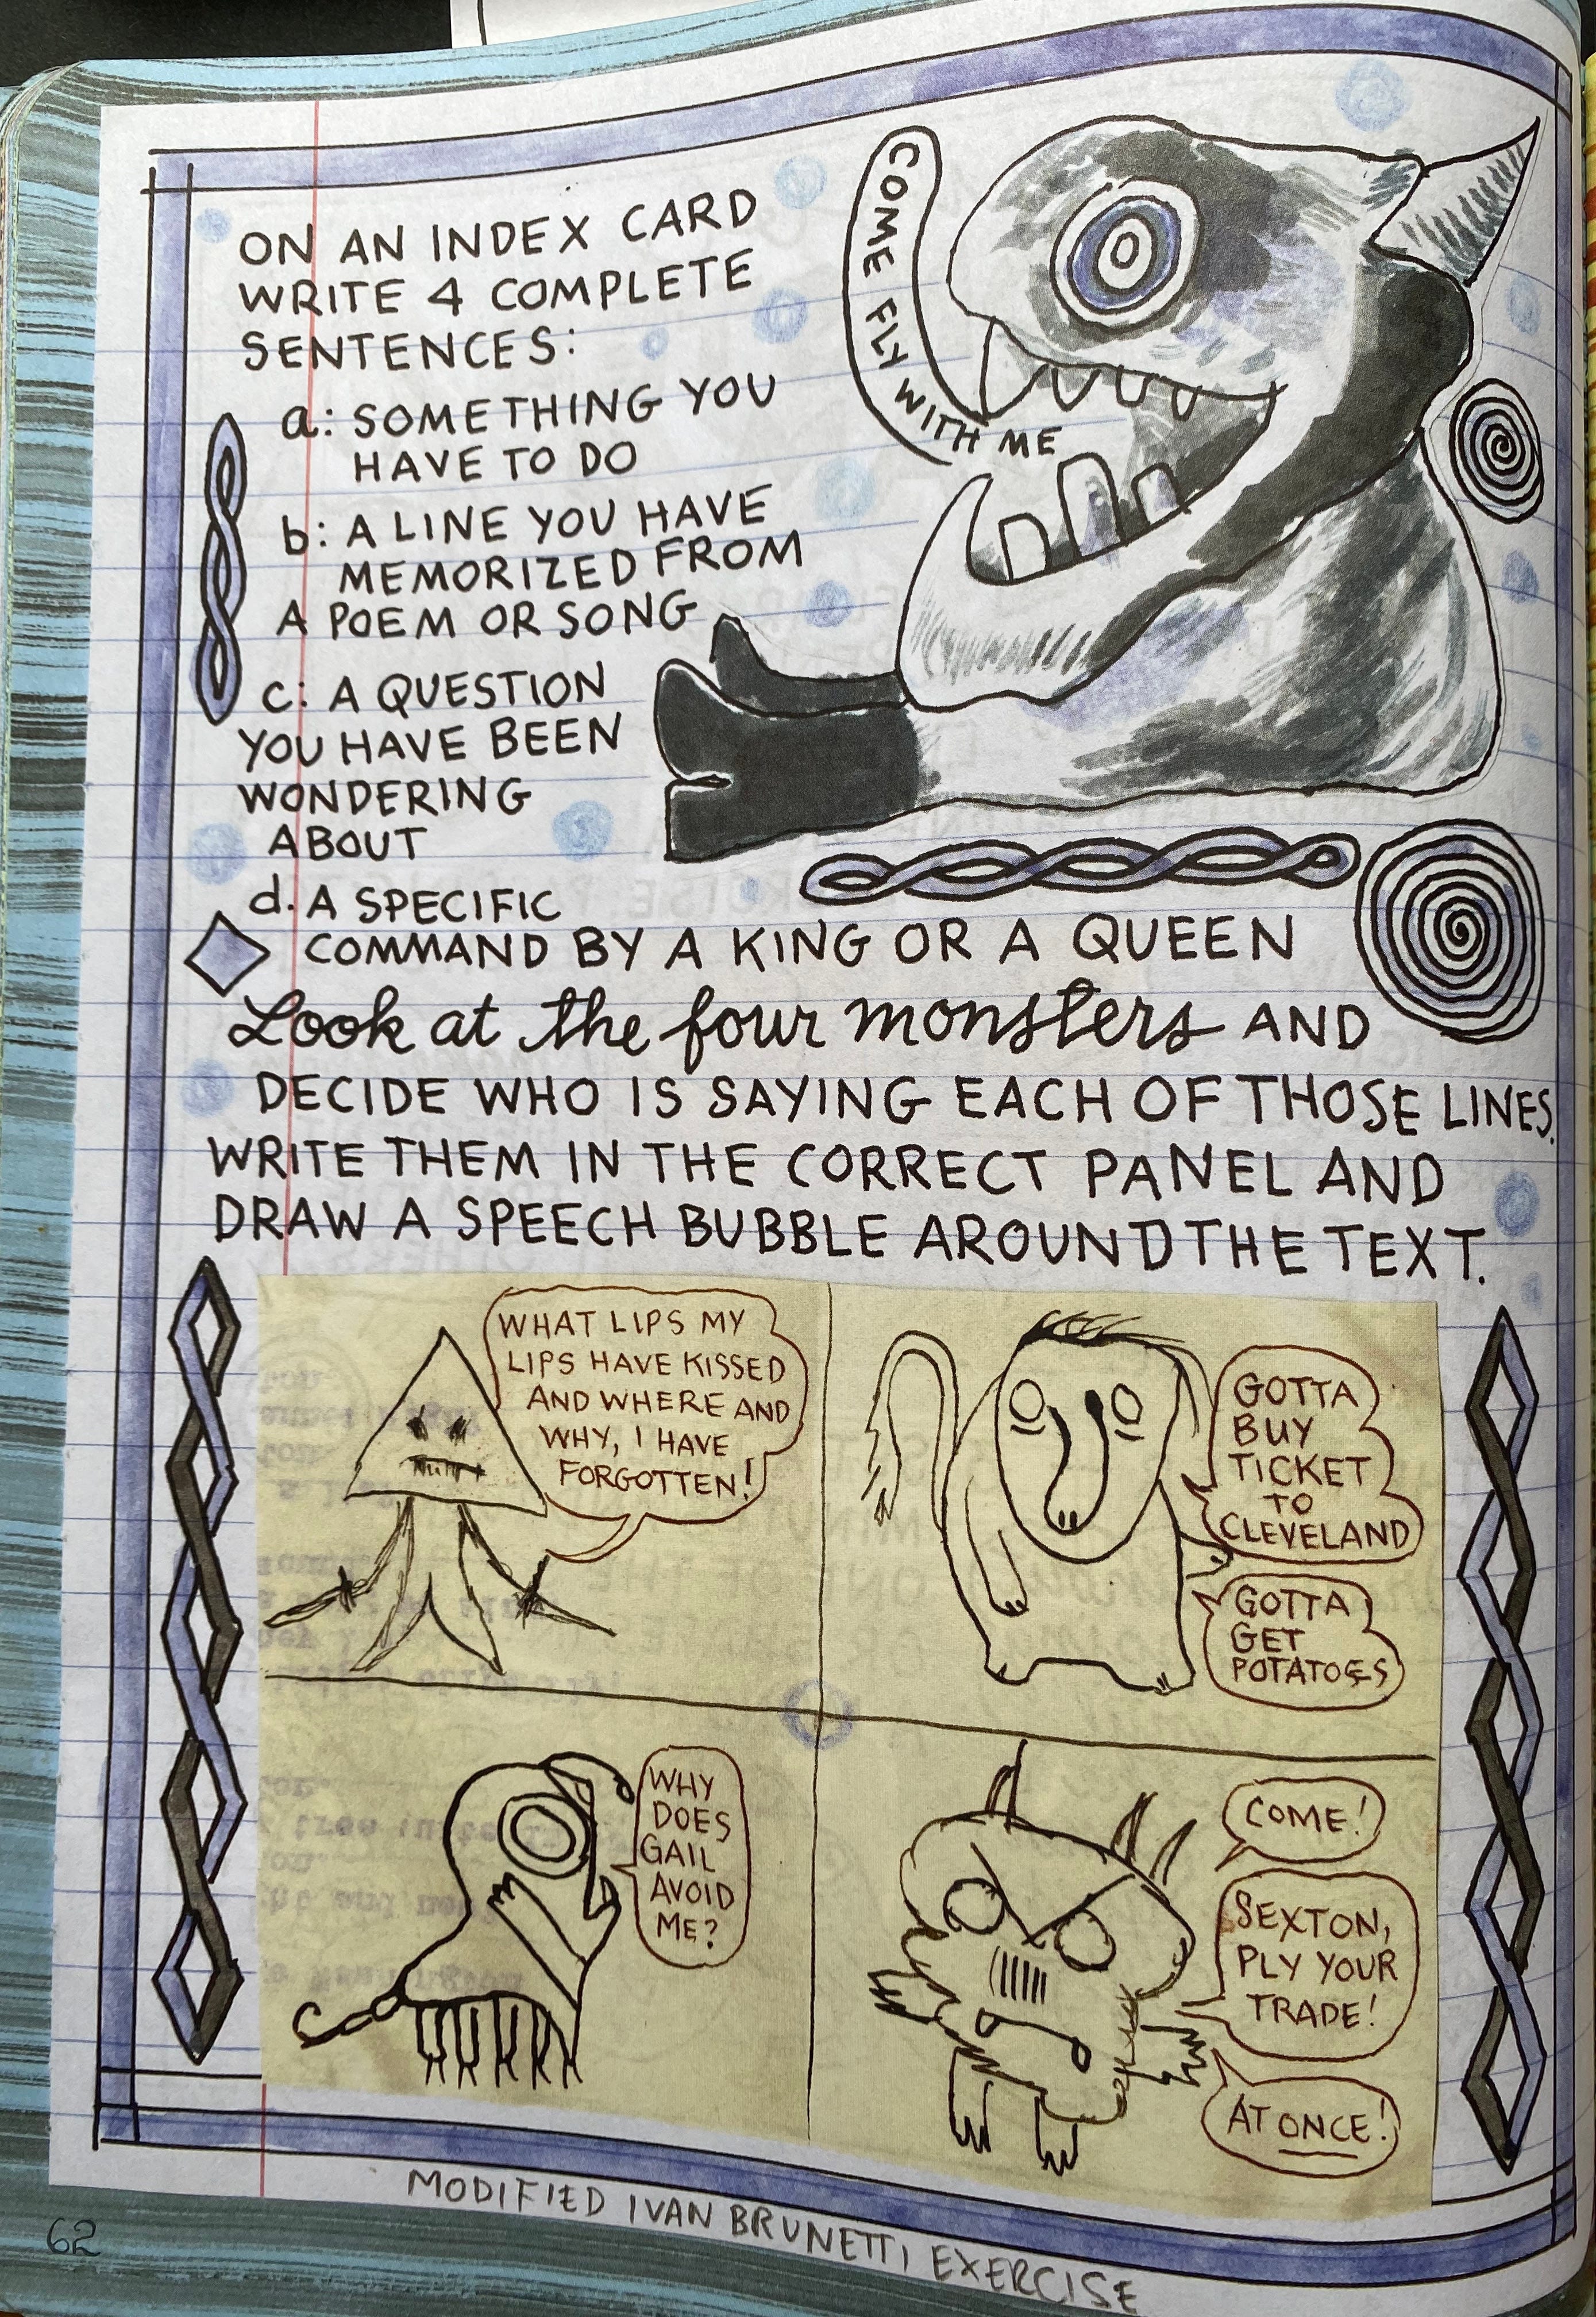 ON AN INDEX CARD
WRITE 4 COMPLETE
SENTENCES:
a: SOMETHING YOU
HAVE TO DO
b: A LINE YOU HAVE
MEMORIZED FROM
A POEM OR SONG
c: A QUESTION
YOU HAVE BEEN
WONDERING
ABOUT
d. A SPECIFIC
COMMAND BY A KING OR A QUEEN
COME FLY WITH ME
Look at the four monsters AND
DECIDE WHO IS SAYING EACH OF THOSE LINES.
WRITE THEM IN THE CORRECT PANEL AND
DRAW A SPEECH BUBBLE AROUND THE TEXT.
WHAT LIPS MY
LIPS HAVE KISSED
AND WHERE AND
WHY, I HAVE
FORGOTTEN!
GOTTA
BUY
TICKET
TO
CLEVELAND
GOTTA
GET
POTATOES
WHY
DOES
GAIL
AVOID
ME?
COME!
SEXTON,
PLY YOUR
TRADE!
AT ONCE!
MODIFIED IVAN BRUNETTI EXERCISE
62